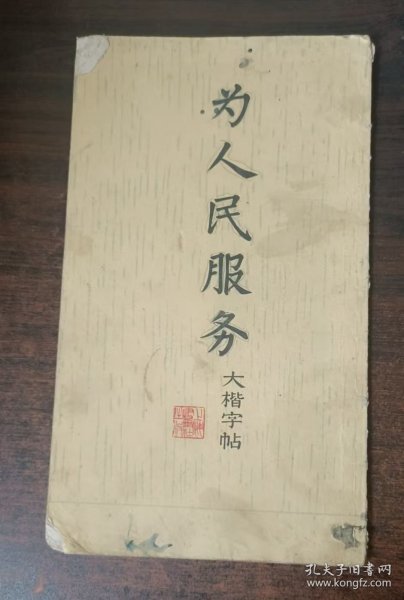 为人民服务
大楷字帖
孔夫子旧书网
www.kongfz.com